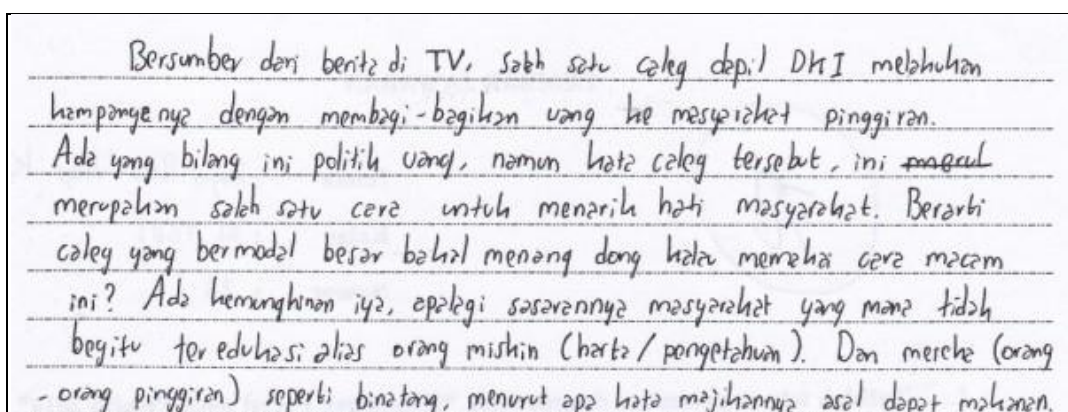 Bersumber dari berita di TV, salah satu caleg dapil DKI melakukan
kampanyenya dengan membagi-bagikan uang ke masyarakat pinggiran.
Ada yang bilang ini politik uang, namun kata caleg tersebut, ini
merupakan salah satu cara untuk menarik hati masyarakat. Berarti
caleg yang bermodal besar bakal menang dong kalau memakai cara macam
ini? Ada kemungkinan iya, apalagi sasarannya masyarakat yang mana tidak
begitu teredukasi alias orang miskin (harta/pengetahuan). Dan mereka (orang
-orang pinggiran) seperti binatang, menurut apa kata majikannya asal dapat makanan.